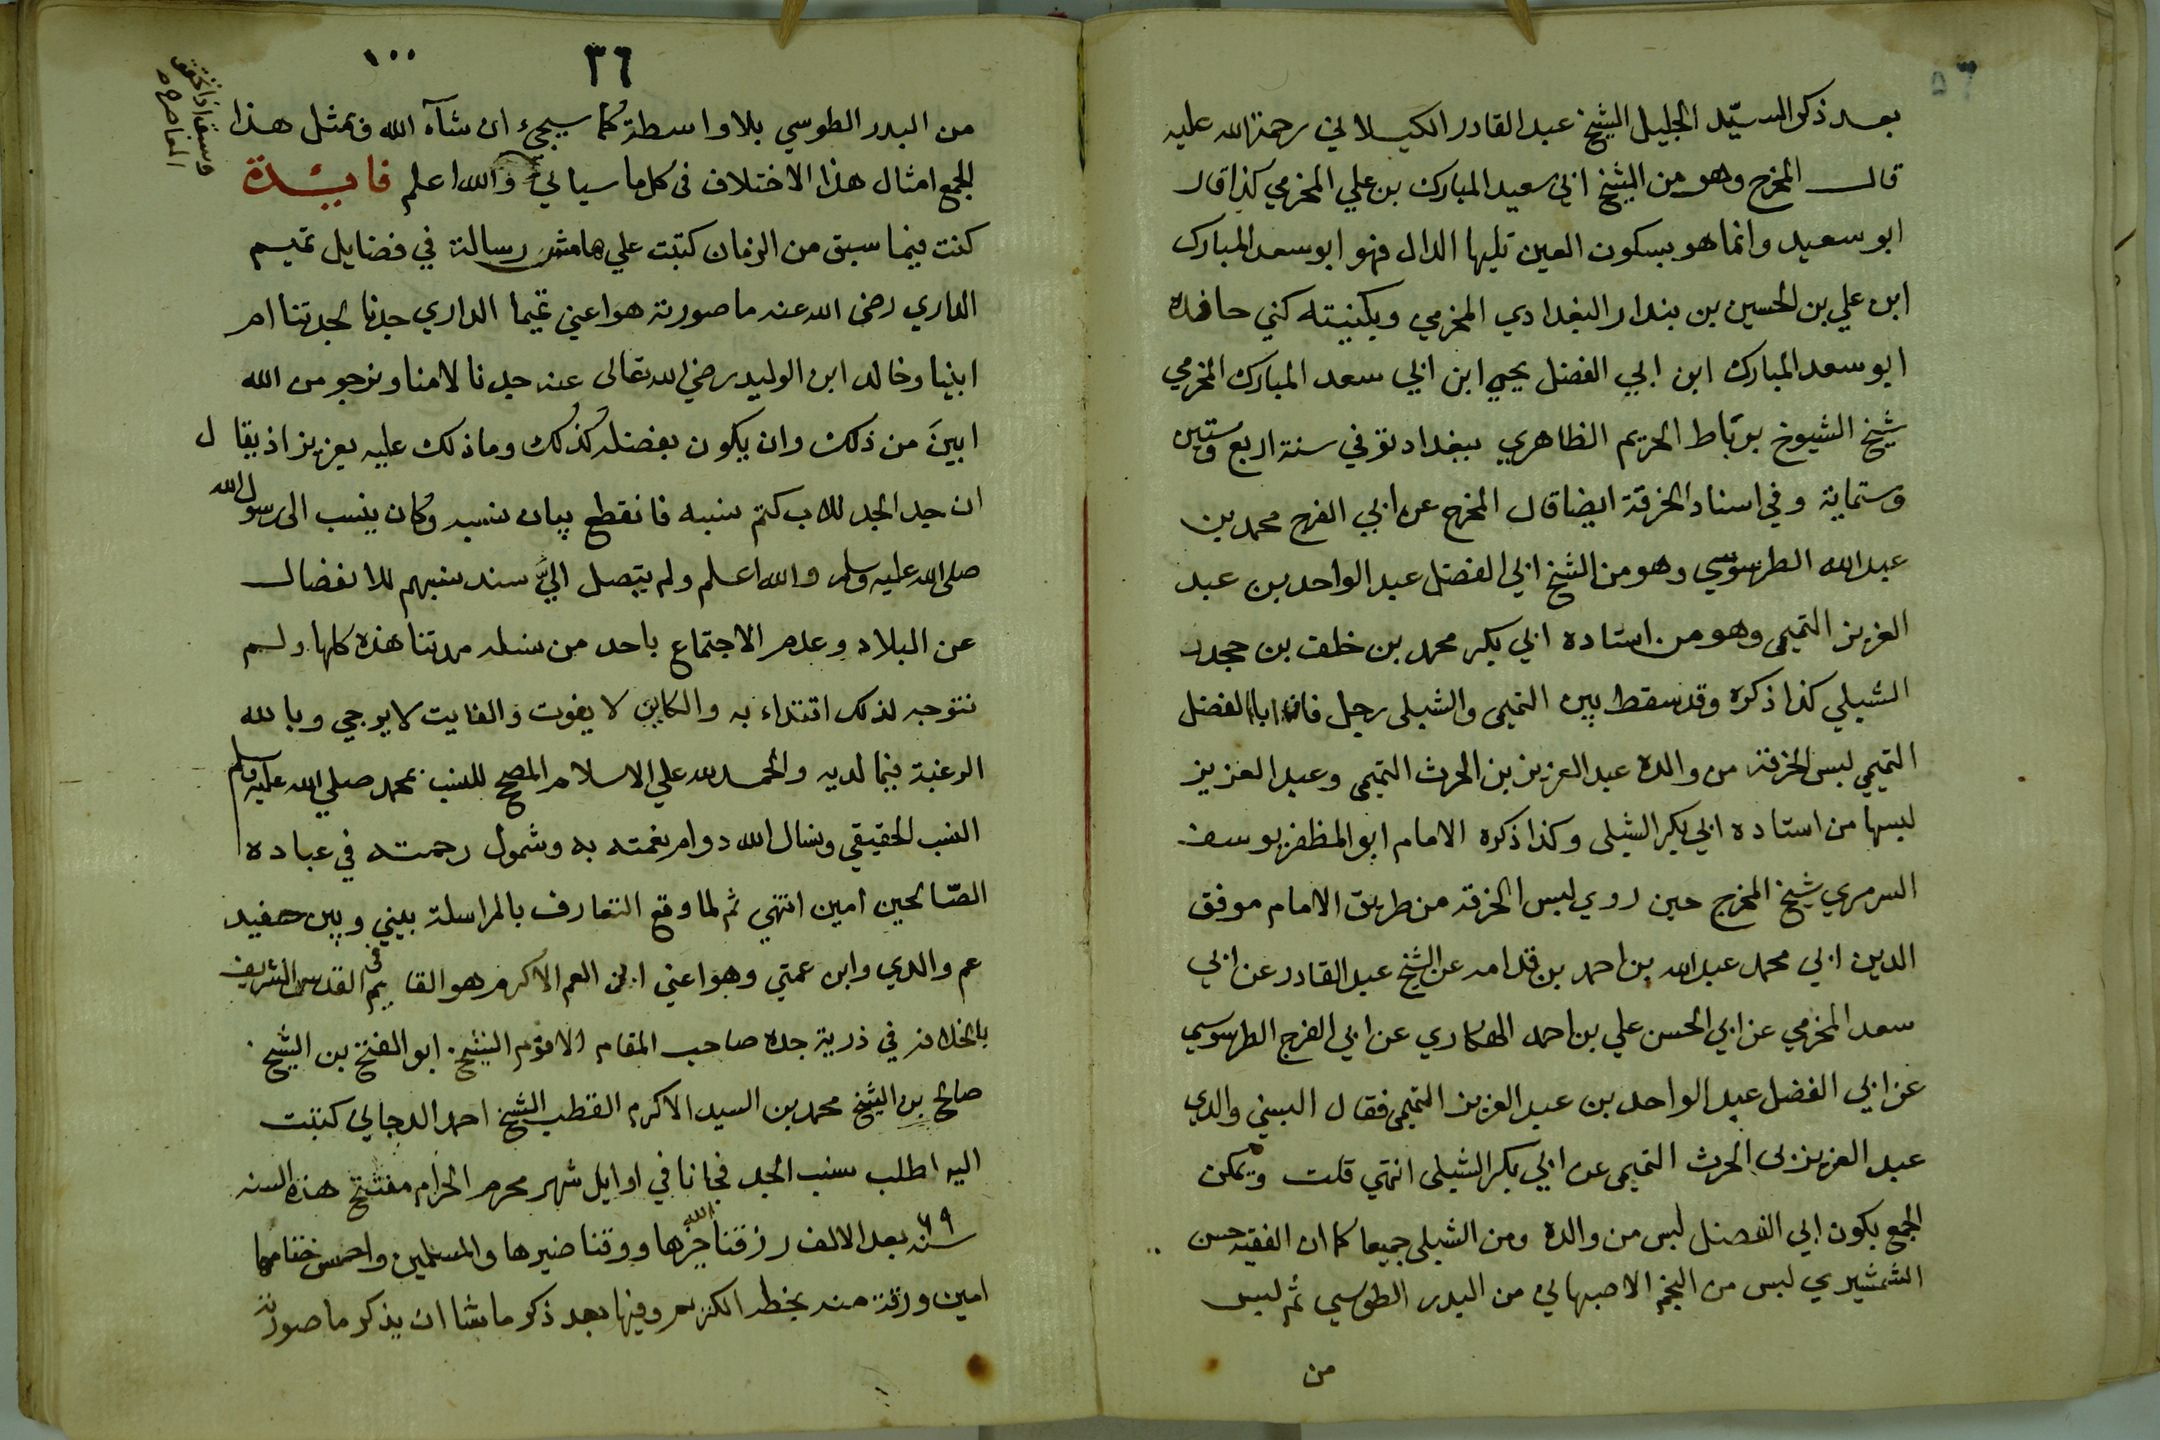 بعد ذكر السيّد الجليل الشيخ عبد القادر الكيلاني رحمة الله عليه
قال المخرج وهو من الشيخ ابي سعيد المبارك بن علي المخرمي كذا قال
ابو سعيد وانما هو بسكون العين تليها الدال فهو ابو سعد المبارك
ابن علي بن الحسين بن بندار البغدادي المخرمي وبكنيته كني حافده
ابو سعد المبارك ابن ابي الفضل يحيى ابن ابي سعد المبارك المخرمي
شيخ الشيوخ برباط الحريم الظاهري ببغداد توفي سنة اربع وستين
وستماية وفي اسناد الخرقة ايضا قال المخرج عن ابي الفرج محمد بن
عبد الله الطرسوسي وهو من الشيخ ابي الفضل عبد الواحد بن عبد
العزيز التميمي وهو من استاده ابي بكر محمد بن خلف بن جحدر
الشبلي كذا ذكره وقد سقط بين التميمي والشبلي رجل فان ابا الفضل
التميمي لبس الخرقة من والده عبد العزيز بن الحرث التميمي وعبد العزيز
لبسها من استاده ابي بكر الشبلي وكذا ذكره الامام ابو المظفر يوسف
السرمري شيخ المخرج حين روي لبس الخرقة من طريق الامام موفق
الدين ابي محمد عبد الله بن احمد بن قدامه عن الشيخ عبد القادر عن ابي
سعد المخرمي عن ابي الحسن علي بن احمد الهكاري عن ابي الفرج الطرسوسي
عن ابي الفضل عبد الواحد بن عبد العزيز التميمي فقال البسني والدي
عبد العزيز بن الحرث التميمي عن ابي بكر الشبلي انتهي قلت ويمكن
الجمع بكون ابي الفضل لبس من والده ومن الشبلي جميعا كما ان الفقيه حسن
الشمشيري لبس من النجم الاصبهاني من البدر الطوسي ثم لبس
من
٣٦
١٠٠
من البدر الطوسي بلا واسطة كما سيجيء ان شآء الله فبمثل هذا
الجمع امثال هذا الاختلاف في كل ما سياتي والله اعلم فايدة
كنت فيما سبق من الزمان كتبت علي هامش رسالة في فضايل تميم
الداري رضى الله عنه ما صورته هو اعني تميما الداري جدنا لجدتنا ام
ابينا وخالد ابن الوليد رضي الله تعالى عنه جدنا لامنا ونرجو من الله
ابينَ من ذلك وان يكون بفضله كذلك وما ذلك عليه بعزيز اذ يقال
ان جد الجد للاب كتم نسبه فانقطع بيان نسبه وكان ينسب الى رسول الله
صلى الله عليه وسلم والله اعلم ولم يتصل اليّ سند نسبهم للانفصال
عن البلاد وعدم الاجتماع باحد من نسله مدتنا هذه كلها ولم
نتوجه لذلك اقتداء به والكاين لا يفوت والفايت لا يرجي وبالله
الرغبة فيما لديه والحمد لله علي الاسلام المصحح للنسب بمحمد صلي الله عليه وسلم
النسب الحقيقي ونسال الله دوام نعمته به وشمول رحمته في عباده
الصّالحين امين انتهي ثم لما وقع التعارف بالمراسلة بيني وبين حفيد
عم والدي وابن عمتي وهو اعني ابن العم الاكرم هو القايم في القدس الشريف
بالخلافة في ذرية جده صاحب المقام الاقوم الشيخ ابو الفتح بن الشيخ
صالح بن الشيخ محمد بن السيد الاكرم القطب الشيخ احمد الدجاني كتبت
اليه اطلب نسب الجد فجانا في اوايل شهر محرم الحرام مفتتح هذه السنه
سنة ٦٩ بعد الالف رزقنا الله خيرها ووقنا ضيرها والمسلمين واحسن ختامها
امين ورقة منه بخطه الكريم وفيها بعد ذكر ما شا ان يذكر ما صورته